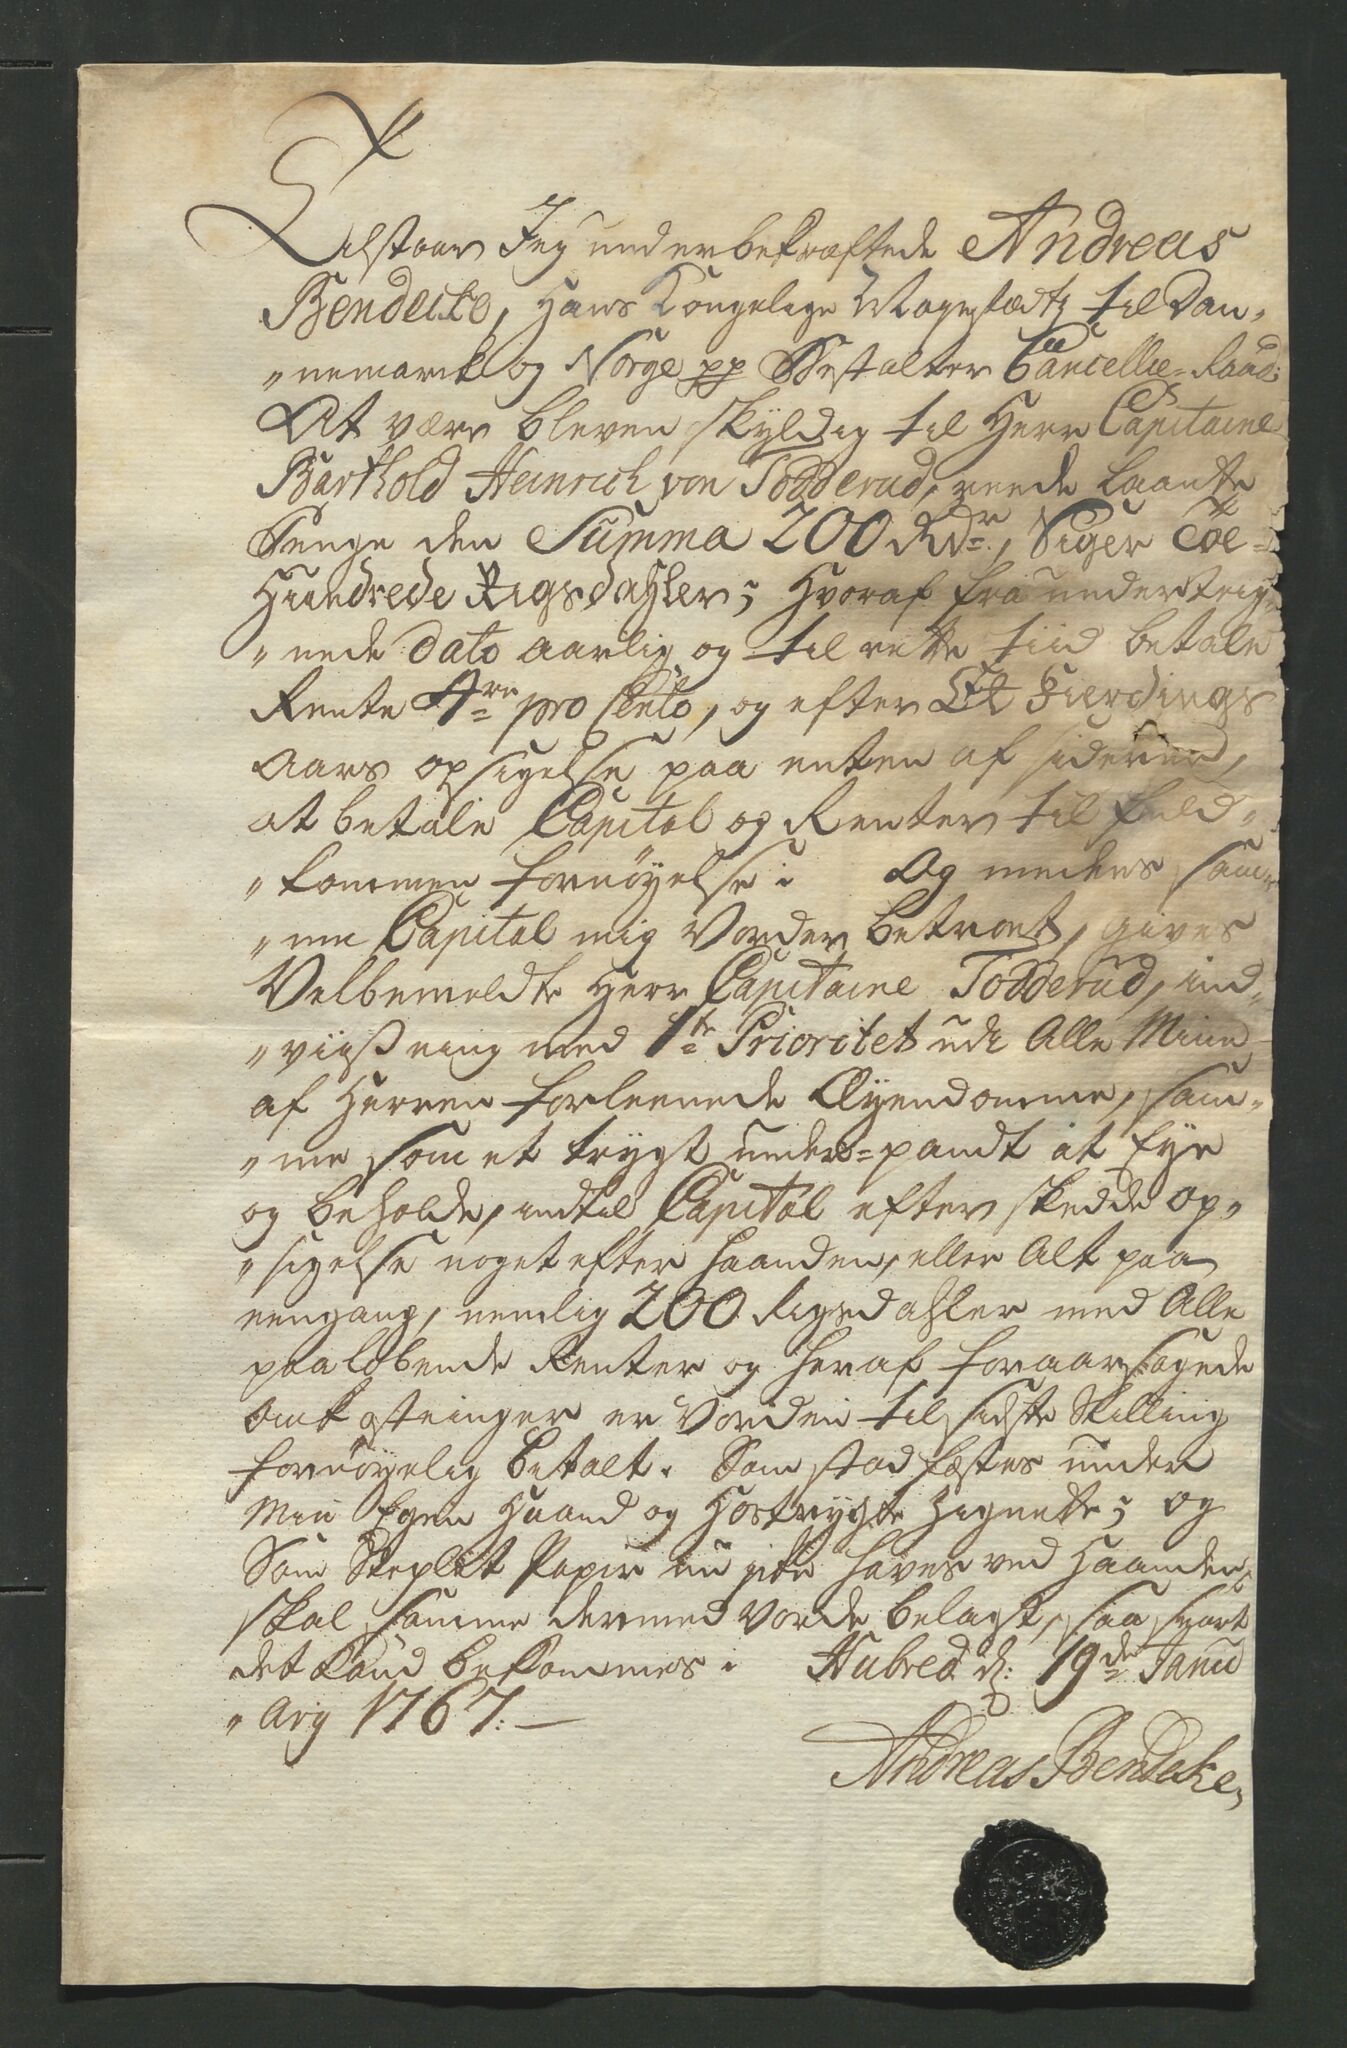 Tilstaar Jeg underbekræftede Andreas
Bendeke, Hans Kongelige Mayestædts til Dan„
„nemarck og Norge pp Bestalter Cancellie=Raad:
At være bleven skyldig til Herr Capitaine
Barthold Heinrich von Todderud, reede laante
Penge den Summa 200 Rdr, Siger Toe=
Hundrede Rigsdahler; Hvoraf fra underteig„
„nede dato aarlig og til rette tiid betale
Rente 4re pro Cento, og efter Et Fierdings
Aars opsigelse paa enten af siderne,
at betale Capital og Renter til fuld„
„kommen fornöyelse: Og medens sam„
„me Capital mig Vorder betroet, gives
Velbemeldte Herr Capitaine Todderud, ind„
„viisning med 1te Prioritet udi Alle Mine
af Herren forleenede Eyendomme, sam„
„me som et trygt under=pandt at Eye
og beholde, indtil Capital efter skedde op„
„sigelse noget efter haanden, eller Alt paa
eengang, nemlig 200 Rigsdahler med Alle
paalöbende Renter og heraf foraarsagede
Omkostninger er Vorden til sidste Skilling
fornöyelig betalt. Som stadfæstes under
Min Egen Haand og Hostrygte Zignette; og
Som Steplet Papir nu icke haves ved Haanden,
skal samme dermed Vorde belagt, saa snart
det kand bekommes. Hubred d: 19de Janu
„ary 1767.
Andreas Bendeke